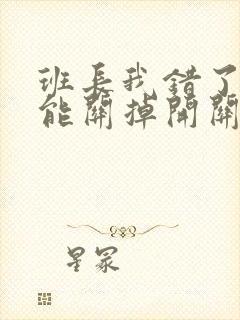 班长我错了
能關掉開關
星冢